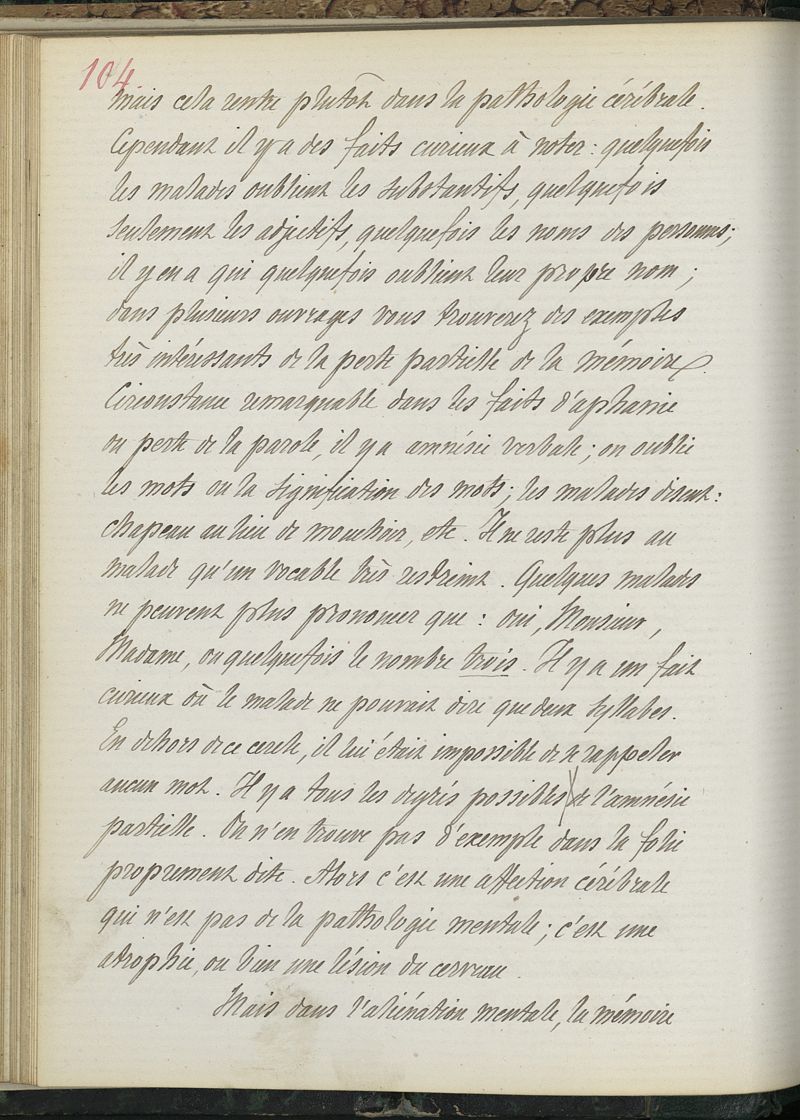 104
mais cela rentre plutôt dans la pathologie cérébrale.
Cependant il y a des faits curieux à noter : quelquefois
les malades oublient les substantifs, quelquefois
seulement les adjectifs, quelquefois les noms des personnes;
il y en a qui quelquefois oublient leur propre nom ;
dans plusieurs ouvrages vous trouverez des exemples
très intéressants de la perte partielle de la mémoire.
Circonstance remarquable dans les faits d'aphasie
ou perte de la parole, il y a amnésie verbale ; on oublie
les mots ou la signification des mots ; les malades disent :
chapeau au lieu de mouchoir, etc. Il ne reste plus au
malade qu'un vocable très restreint. Quelques malades
ne peuvent plus prononcer que : oui, Monsieur,
Madame, ou quelquefois le nombre trois. Il y a un fait
curieux où le malade ne pouvait dire que deux syllabes.
En dehors de ce cercle, il lui était impossible de se rappeler
aucun mot. Il y a tous les degrés possibles de l'amnésie
partielle. On n'en trouve pas d'exemple dans la folie
proprement dite. Alors c'est une affection cérébrale
qui n'est pas de la pathologie mentale ; c'est une
atrophie, ou bien une lésion du cerveau.
Mais dans l'aliénation mentale, la mémoire